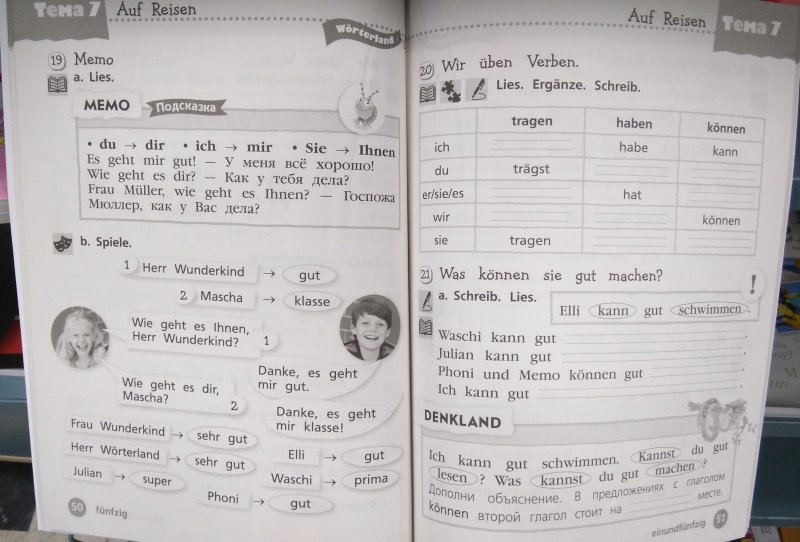 Тема 7 Auf Reisen
Wörterland
19 Memo
a. Lies.
MEMO Подсказка
• du → dir • ich → mir • Sie → Ihnen
Es geht mir gut! — У меня всё хорошо!
Wie geht es dir? — Как у тебя дела?
Frau Müller, wie geht es Ihnen? — Госпожа
Мюллер, как у Вас дела?
b. Spiele.
1 Herr Wunderkind → gut
2 Mascha → klasse
Wie geht es Ihnen,
Herr Wunderkind? 1
Danke, es geht
mir gut.
Wie geht es dir,
Mascha? 2
Danke, es geht
mir klasse!
Frau Wunderkind → sehr gut
Herr Wörterland → sehr gut
Julian → super
Elli → gut
Waschi → prima
Phoni → gut
50 fünfzig
Auf Reisen Тема 7
20 Wir üben Verben.
Lies. Ergänze. Schreib.
tragen haben können
ich habe kann
du trägst
er/sie/es hat
wir können
sie tragen
21 Was können sie gut machen?
a. Schreib. Lies.
!
Elli kann gut schwimmen.
Waschi kann gut .
Julian kann gut .
Phoni und Memo können gut .
Ich kann gut .
DENKLAND
Ich kann gut schwimmen. Kannst du gut
lesen? Was kannst du gut machen?
Дополни объяснение. В предложениях с глаголом
können второй глагол стоит на месте.
einundfünfzig 51